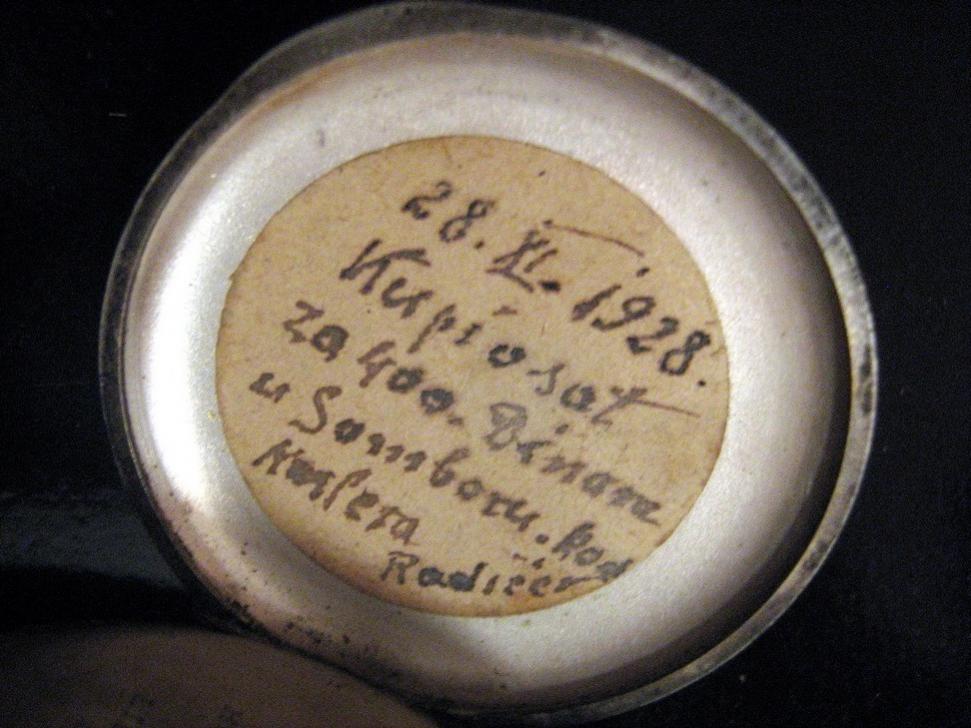 28. XI. 1928.
Kupio sat
za 400. Dinara
u Somboru. kod
Kajsera